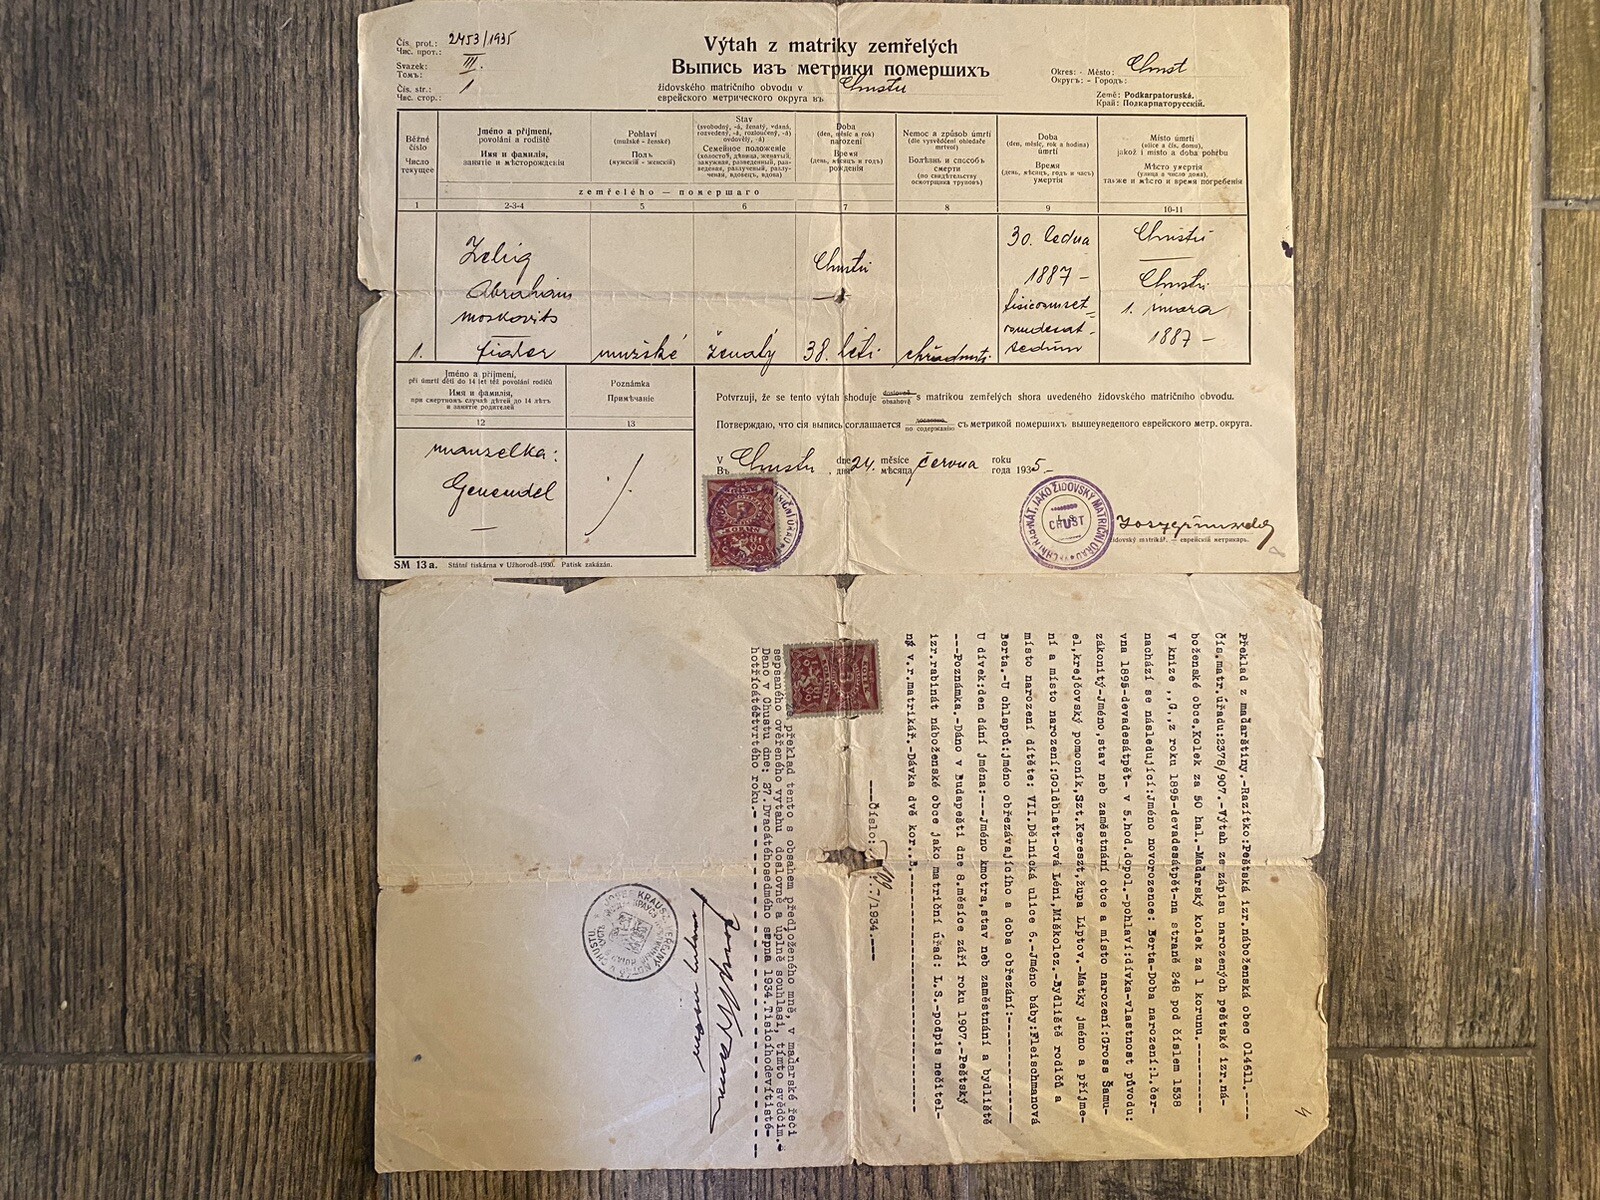 Čís. prot.: 2453/1935
Чис. прот.:
Svazek: III.
Томъ:
Čís. str.: 1
Чис. стор.:
Výtah z matriky zemřelých
Выпись изъ метрики померших
židovského matričního obvodu v Chustu
еврейского метрического округа въ
Okres: - Město: Chust
Округъ: - Городъ:
Země: Podkarpatoruská.
Край: Подкарпаторусскій.
Běžné číslo
Число текущее
Jméno a příjmení, povolání a rodiště
Имя и фамилія, занятіе и мѣсторожденія
Pohlaví
(mužské - ženské)
Полъ
(мужскій - женскій)
Stav
(svobodný, -á, ženatý, vdaná, rozvedený, -á, rozloučený, -á, ovdovělý, -á)
Семейное положеніе
Doba
(den, měsíc a rok)
narození
Время
(день, мѣсяцъ и годъ)
рожденія
Nemoc a způsob úmrtí
(dle vysvědčení ohledače mrtvol)
Болѣзнь и способъ смерти
(по свидѣтельству осмотрщика труповъ)
Doba
(den, měsíc, rok a hodina)
úmrtí
Время
(день, мѣсяцъ, годъ и часъ)
умертія
Místo úmrtí
(ulice a čís. domu),
jakož i místo a doba pohřbu
Мѣсто умертія
(улица а число дома),
также и мѣсто и время погребенія
zemřelého — помершаго
1 2-3-4 5 6 7 8 9 10-11
Zelig
Abraham
Moskovits
1. mužské ženatý
Chustu
38. léti
30. ledna
1887 -
Chustu
Chustu
1. února
1887 -
Jméno a příjmení,
při úmrtí dětí do 14 let též povolání rodičů
Имя и фамилія,
при смертномъ случкѣ дѣтей до 14 лѣтъ
и занятіе родителей
Poznámka
Примѣчаніе
12 13
manželka:
Genendel
Potvrzuji, že se tento výtah shoduje doslovně obsahově s matrikou zemřelých shora uvedeného židovského matričního obvodu.
Потверждаю, что сія выпись соглашается по содержанію съ метрикой помершихъ вышеуведеного еврейского метр. округа.
v Chustu, dne 24. měsíce června roku 1935.-
Въ дня мѣсяца года
CHUST
židovský matrikář. — еврейскій метрикарь.
SM 13 a. Státní tiskárna v Užhorodě-1930. Patisk zakázán.
Překlad z maďarštiny.-Razítko:Peštská izr.náboženská obec 014611.----
Čís.matr.úřadu:2378/907.-Výtah ze zápisu narozených peštské izr.ná-
boženské obce.Kolek za 50 hal.-Maďarský kolek za 1 korunu.---------
V knize ,,G,,z roku 1895-devadesátpět-na straně 248 pod číslem 1538
nachází se následující:Jméno novorozence: Berta-Doba narození:1.čer-
vna 1895-devadesátpět- v 5.hod.dopol.-pohlaví:dívka-vlastnost původu:
zákonitý-Jméno,stav neb zaměstnání otce a místo narození:Gross Šamu-
el,krejčovský pomocník,Szt.Kereszt,župa Liptov.-Matky jméno a příjme-
ní a místo narození:Goldblatt-ová Léni,Miškolcz.-Bydliště rodičů a
místo narození dítěte: VII.Dělnická ulice 6.-Jméno báby:Fleischmanová
Berta.-U chlapců:jméno obřezávajícího a doba obřezání:-----------
U dívek:den dání jména:---Jméno kmotra,stav neb zaměstnání a bydliště
---Poznámka.-Dáno v Budapešti dne 8.měsíce září roku 1907.-Peštský
izr.rabinát náboženské obce jako matriční úřad: L.S.-podpis nečitel-
ný v.r.matrikář.-Dávka dvě kor.
---Číslo: /1934.---
že překlad tento s obsahem předloženého mně, v maďarské řeči
sepsaného ověřeného výtahu doslovně a úplně souhlasí, tímto svědčím.
Dáno v Chustu dne: 27.Dvacátéhosedmého srpna 1934.Tisícíhodevítisté-
hotřicátéčtvrtého roku.